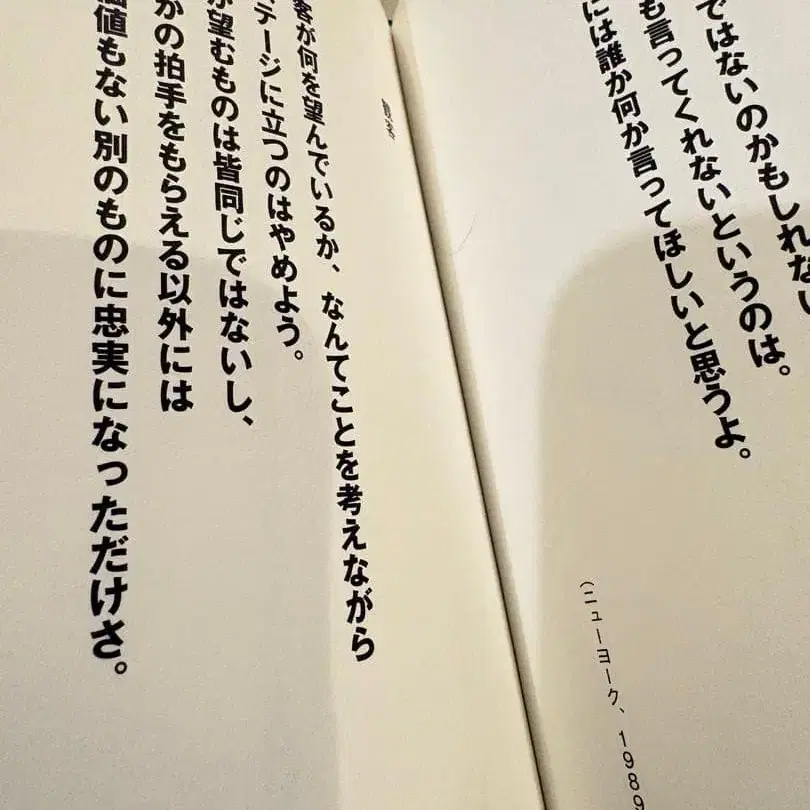 ではないのかもしれない
も言ってくれないというのは。
には誰か何か言ってほしいと思うよ。
（ニューヨーク、1989
客が何を望んでいるか、なんてことを考えながら
テージに立つのはやめよう。
望むものは皆同じではないし、
かの拍手をもらえる以外には
値もない別のものに忠実になっただけさ。